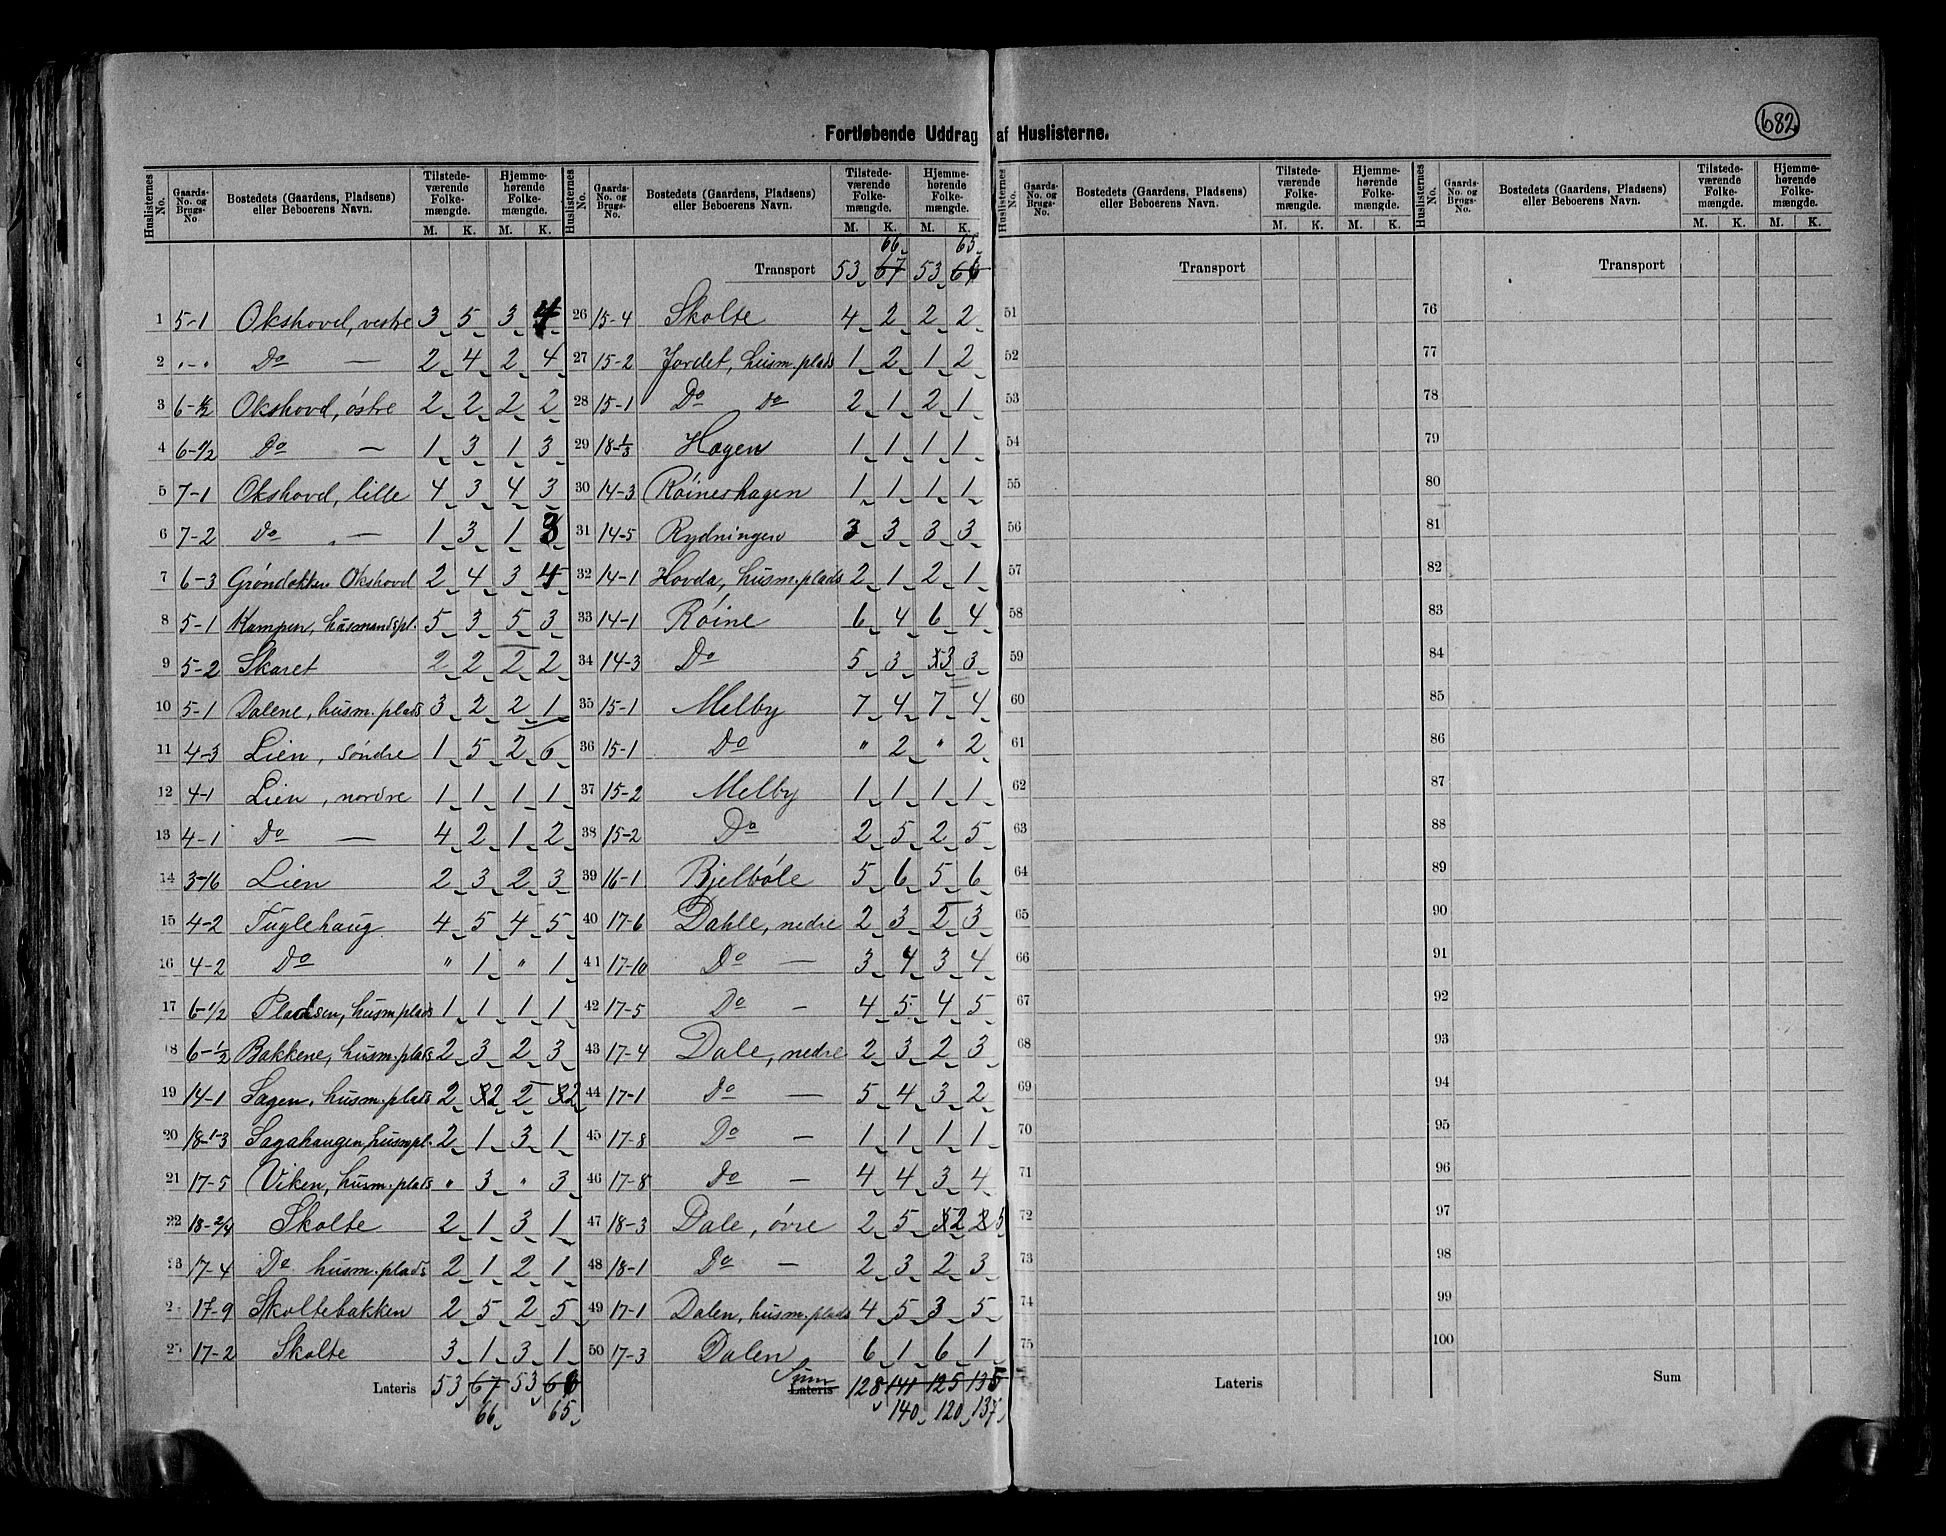 682
Fortløbende Uddrag af Huslisterne.
Huslisternes No. | Gaards-No. og Brugs-No. | Bostedets (Gaardens, Pladsens) eller Beboerens Navn. | Tilstedeværende Folkemængde. M. K. | Hjemmehørende Folkemængde. M. K.
1 5-1 Okshovd, vestre 3 5 3 4
2 "-" Do — 2 4 2 4
3 6-1/2 Okshovd, östre 2 2 2 2
4 6-1/2 Do — 1 3 1 3
5 7-1 Okshovd, lille 4 3 4 3
6 7-2 Do — 1 3 1 3
7 6-3 Gröndokken Okshovd 2 4 3 4
8 5-1 Kampen, husmandspl. 5 3 5 3
9 5-2 Skaret 2 2 2 2
10 5-1 Dalene, husm.plads 3 2 2 1
11 4-3 Lien, söndre 1 5 2 6
12 4-1 Lien, nordre 1 1 1 1
13 4-1 Do — 4 2 1 2
14 3-16 Lien 2 3 2 3
15 4-2 Fuglehaug 4 5 4 5
16 4-2 Do " 1 " 1
17 6-1/2 Pladsen, husmplads 1 1 1 1
18 6-1/2 Bakkene, husm.plads 2 3 2 3
19 14-1 Sagen, husm.plads 2 2 2 2
20 18-1-3 Sagahaugen, husmpl. 2 1 3 1
21 17-5 Viken, husm.plads " 3 " 3
22 18-2/4 Skolte 2 1 3 1
23 17-4 Do husm.plads 2 1 2 1
2 17-9 Skoltebakken 2 5 2 5
25 17-2 Skolte 3 1 3 1
Lateris 53 67 53 66
66 65
66 65
Transport 53 67 53 66
26 15-4 Skolte 4 2 2 2
27 15-2 Jordet, husm.plads 1 2 1 2
28 15-1 Do do 2 1 2 1
29 18-1/3 Hagen 1 1 1 1
30 14-3 Röineshagen 1 1 1 1
31 14-5 Rydningen 3 3 3 3
32 14-1 Hovda, husm.plads 2 1 2 1
33 14-1 Röine 6 4 6 4
34 14-3 Do 5 3 3 3
35 15-1 Melby 7 4 7 4
36 15-1 Do " 2 " 2
37 15-2 Melby 1 1 1 1
38 15-2 Do 2 5 2 5
39 16-1 Bjelböle 5 6 5 6
40 17-6 Dahle, nedre 2 3 2 3
41 17-10 Do — 3 4 3 4
42 17-5 Do — 4 5 4 5
43 17-4 Dale, nedre 2 3 2 3
44 17-1 Do — 5 4 3 2
45 17-8 Do — 1 1 1 1
46 17-8 Do — 4 4 3 4
47 18-3 Dale, övre 2 5 2 5
48 18-1 Do — 2 3 2 3
49 17-1 Dalen, husm.plads 4 5 3 5
50 17-3 Dalen 6 1 6 1
Sum
Lateris 128 141 125 135
140 120 137
Huslisternes No. | Gaards-No. og Brugs-No. | Bostedets (Gaardens, Pladsens) eller Beboerens Navn. | Tilstedeværende Folkemængde. M. K. | Hjemmehørende Folkemængde. M. K.
Transport
51
52
53
54
55
56
57
58
59
60
61
62
63
64
65
66
67
68
69
70
71
72
73
74
75
Lateris
Huslisternes No. | Gaards-No. og Brugs-No. | Bostedets (Gaardens, Pladsens) eller Beboerens Navn. | Tilstedeværende Folkemængde. M. K. | Hjemmehørende Folkemængde. M. K.
Transport
76
77
78
79
80
81
82
83
84
85
86
87
88
89
90
91
92
93
94
95
96
97
98
99
100
Sum